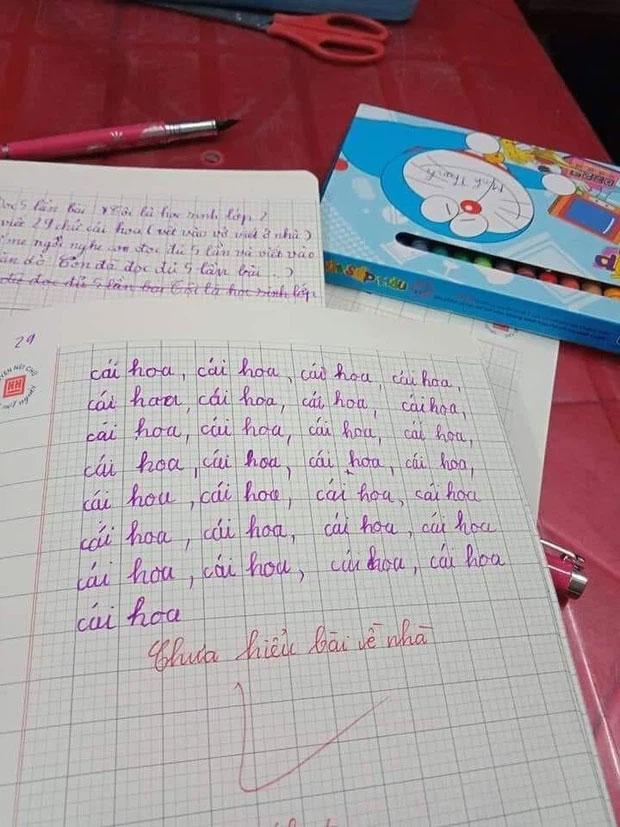 ọc 5 lần bài : Tôi là học sinh lớp 2
viết 29 chữ cái hoa ( viết vào vở viết ở nhà )
ngồi nghe con đọc đủ 5 lần và viết vào
dò Con đã đọc đủ 5 lần bài . )
đã đọc đủ 5 lần bài Tôi là học sinh lớp
29
HH
cái hoa, cái hoa, cái hoa, cái hoa,
cái hoa, cái hoa, cái hoa, cái hoa,
cái hoa, cái hoa, cái hoa, cái hoa,
cái hoa, cái hoa, cái hoa, cái hoa,
cái hoa, cái hoa, cái hoa, cái hoa
cái hoa, cái hoa, cái hoa, cái hoa
cái hoa, cái hoa, cái hoa, cái hoa
cái hoa
Chưa hiểu bài về nhà